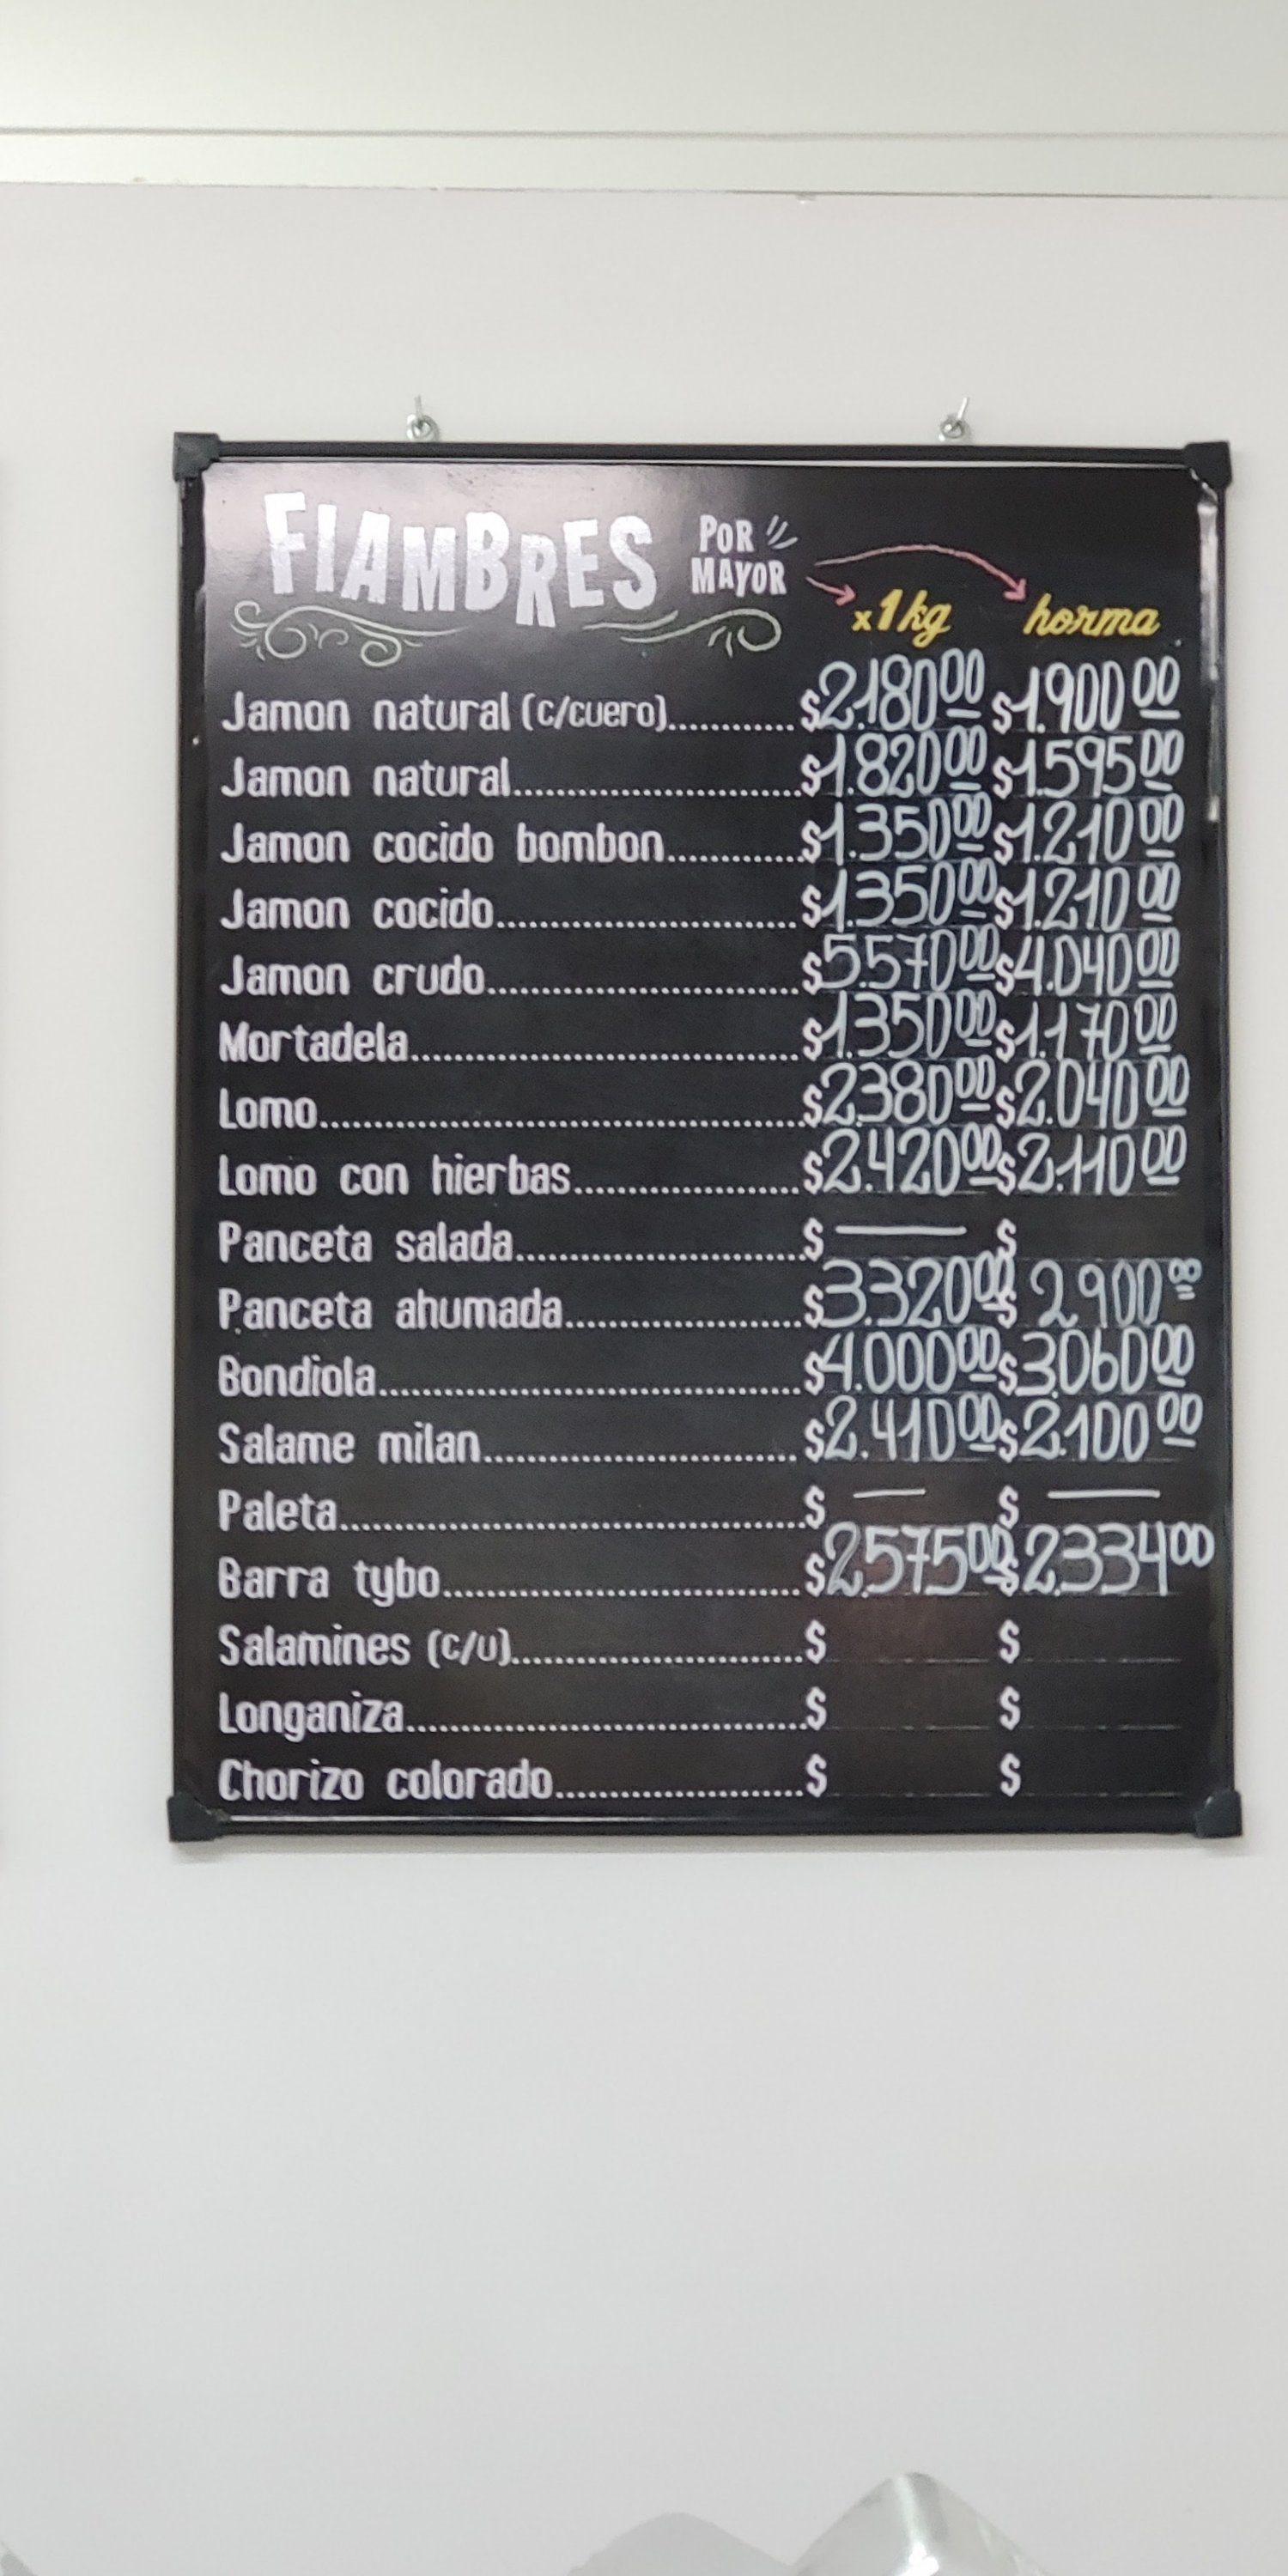 FIAMBRES POR MAYOR
x1kg horma
Jamon natural (c/cuero)..........$2.18000 $1.900 00
Jamon natural..........$1.82000 $1.59500
Jamon cocido bombon..........$1.35000 $1.21000
Jamon cocido..........$1.35000 $1.21000
Jamon crudo..........$5.57000 $4.04000
Mortadela..........$1.35000 $1.17000
Lomo..........$2.38000 $2.04000
Lomo con hierbas..........$2.42000 $2.11000
Panceta salada..........$ — $
Panceta ahumada..........$3.32000 $ 2.90000
Bondiola..........$4.00000 $3.06000
Salame milan..........$2.41000 $2.100 00
Paleta..........$ — $ —
Barra tybo..........$2.57500 $2.33400
Salamines (c/u)..........$ $
Longaniza..........$ $
Chorizo colorado..........$ $